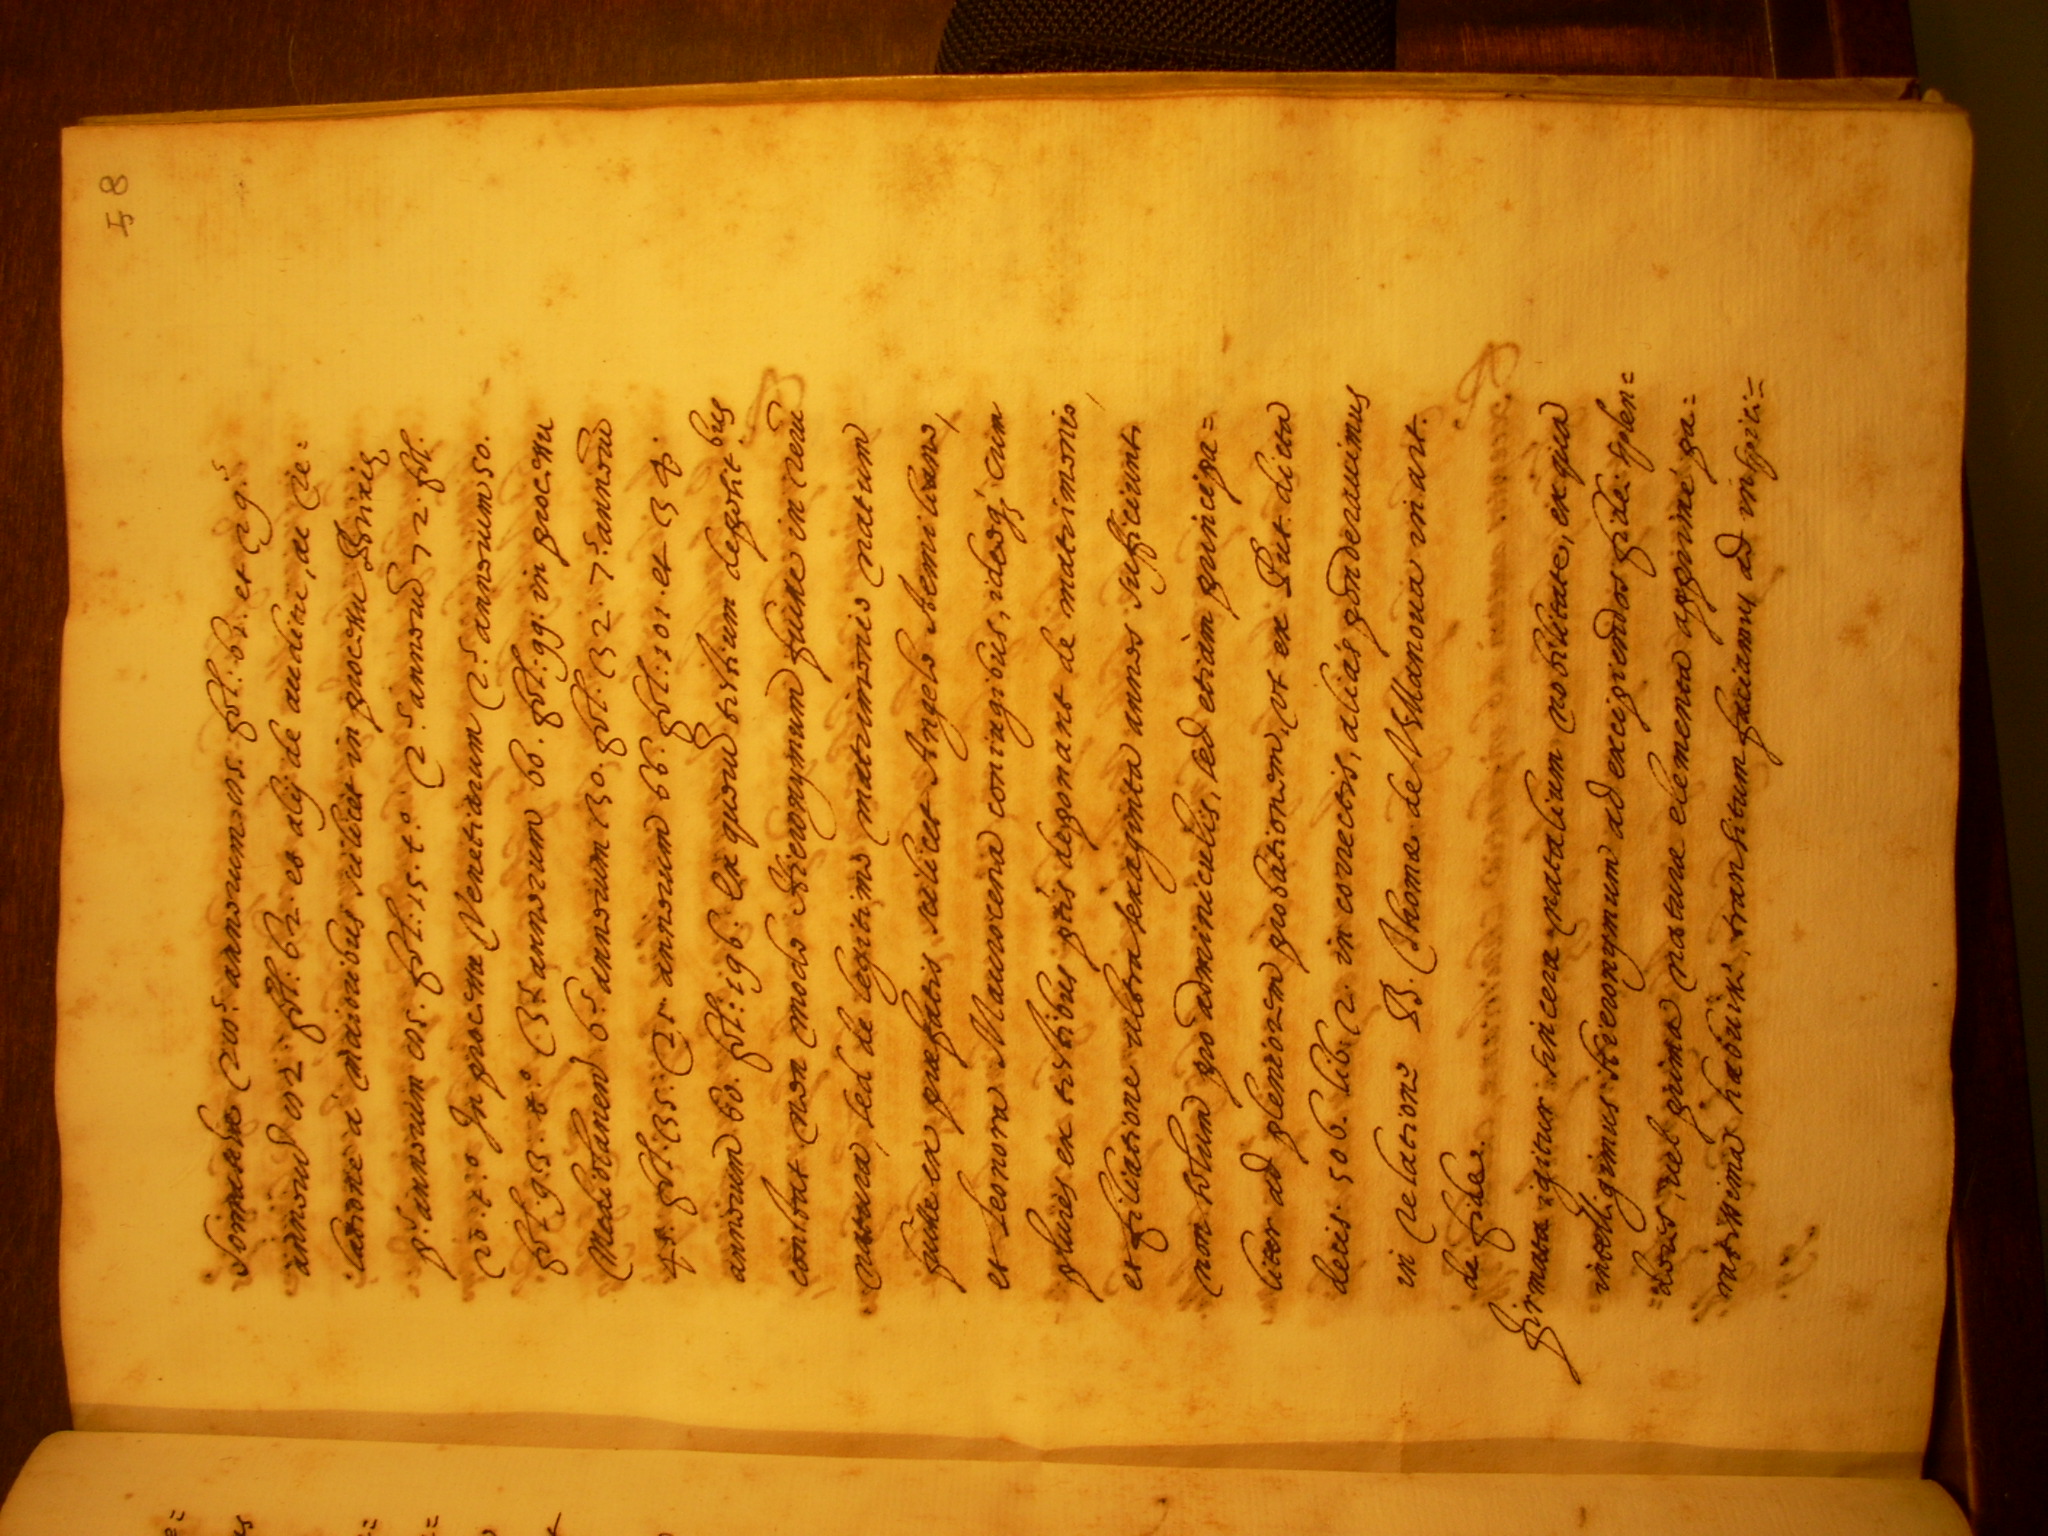 58
Somaschæ 20.s annorum 105. fol: 61. et 29.s
annorũ 102 fol: 62. et alij de auditu, ac re=
latione a' maioribus scilicet in processu
p.s annorum 105. fol: 15. t.o 2.s annorũ 72. fol.
20. t.o In processu Venetiarum 2.s annorum 50.
fol: 93. t.o 3.s annorum 60. fol: 99: in processu
Mediolanen 6.s annorum 50. fol: 32. 7.s annorũ
45. fol: 35. annorum 66. fol: 101. et 13
annorum 60. fol: 196. Ex quorũ testium deposit.bus
constat non modo Hieronymum fuisse in rerũ
natura, sed de legitimo matrimonio natum
fuisse ex præfatis scilicet Angelo Aemiliano,
et Leonora Maurocena coniugibus, ideoq; cum
plures ex testibus p̃tis deponant de matrimonio,
et filiatione ultra sexaginta annos sufficiunt,
non solum pro adminiculis, sed etiam principa=
liter ad pleniorem probationem, vt ex Put. dicta
decis. 506. lib. 2. in correctis, alias ponderauimus
in relatione B. Thomæ de Villanoua in art.
de fide.
Firmata igitur sincera natalium nobilitate, ex qua
intell.gimus Hieronymum ad excipiendos fidei splen=
dores, uel prima naturæ elementa apprimè pa=
ratissima habuisse, transitum faciamus ad